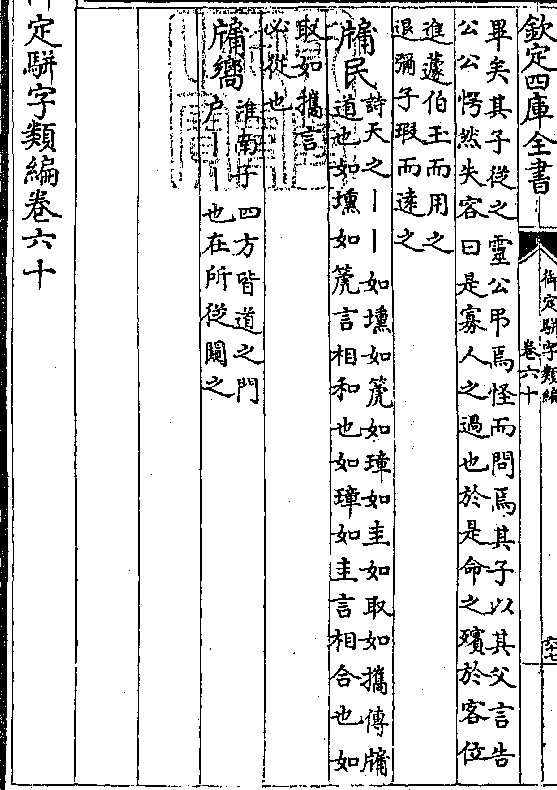 御定駢字類編
卷六十
欽定四庫全書
畢矣其子從之靈公弔焉怪而問焉其子以其父言告
公公愕然失容曰是寡人之過也於是命之殯於客位
進蘧伯玉而用之
退彌子瑕而遠之
牖民 詩天之丨丨如壎如篪如璋如圭如取如攜傳牖
道也如壎如篪言相和也如璋如圭言相合也如
取如攜言
必從也
牖嚮 淮南子四方皆道之門
户丨丨也在所從闚之
定駢字類編卷六十